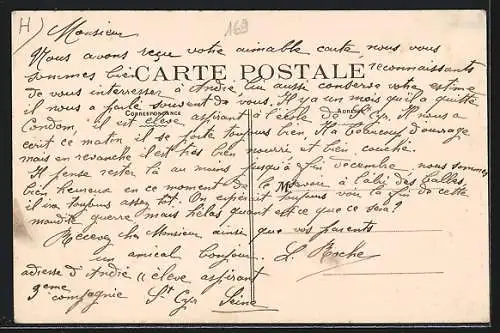 H) Monsieur
169
Nous avons reçu votre aimable carte, nous vous
sommes bien reconnaissants
CARTE POSTALE
de vous interresser à André lui aussi conserve votre estime
il nous a parlé souvent de vous. Il y a un mois qu'il a quitté
CORRESPONDANCE
ADRESSE
Condom, il est élève aspirant à l'école de St Cyr. Il nous a
écrit ce matin il se porte toujours bien. Il a beaucoup d'ouvrage
mais en revanche il est très bien nourri et bien couché.
Il pense rester là au moins jusqu'à fin décembre nous sommes
bien heureux en ce moment de le savoir à l'abri des balles,
il ira toujours assez tôt. On espérait toujours voir la fin de cette
maudite guerre mais hélas quand est-ce que ce sera?
Recevez cher Monsieur ainsi que vos parents
un amical bonjour. L. Roche
adresse d'André élève aspirant
3eme compagnie St Cyr Seine